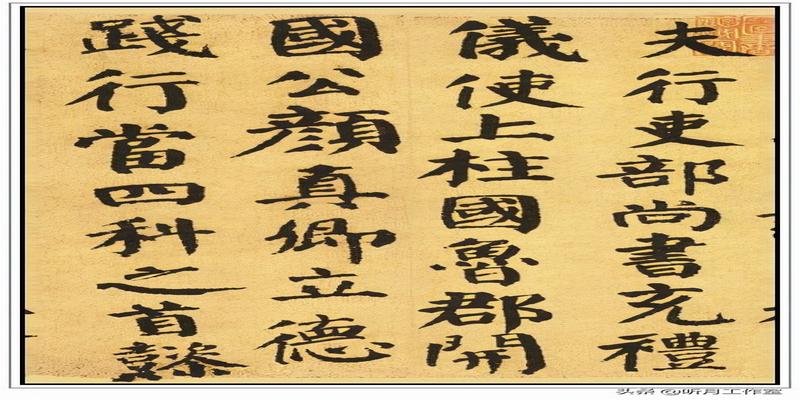 夫行吏部尚書充禮
儀使上柱國魯郡開
國公顏真卿立德
踐行當四科之首懿
头条 @听月工作室